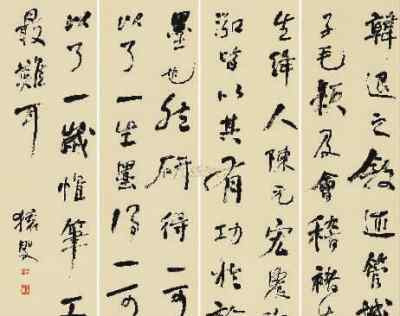 韓退之敘述管城
子毛穎及會稽褚先
生絳人陳玄宏農陶
泓皆以其有功於
墨也然研得一可
以了一生墨得一可
以了一歲惟筆工
最難耳